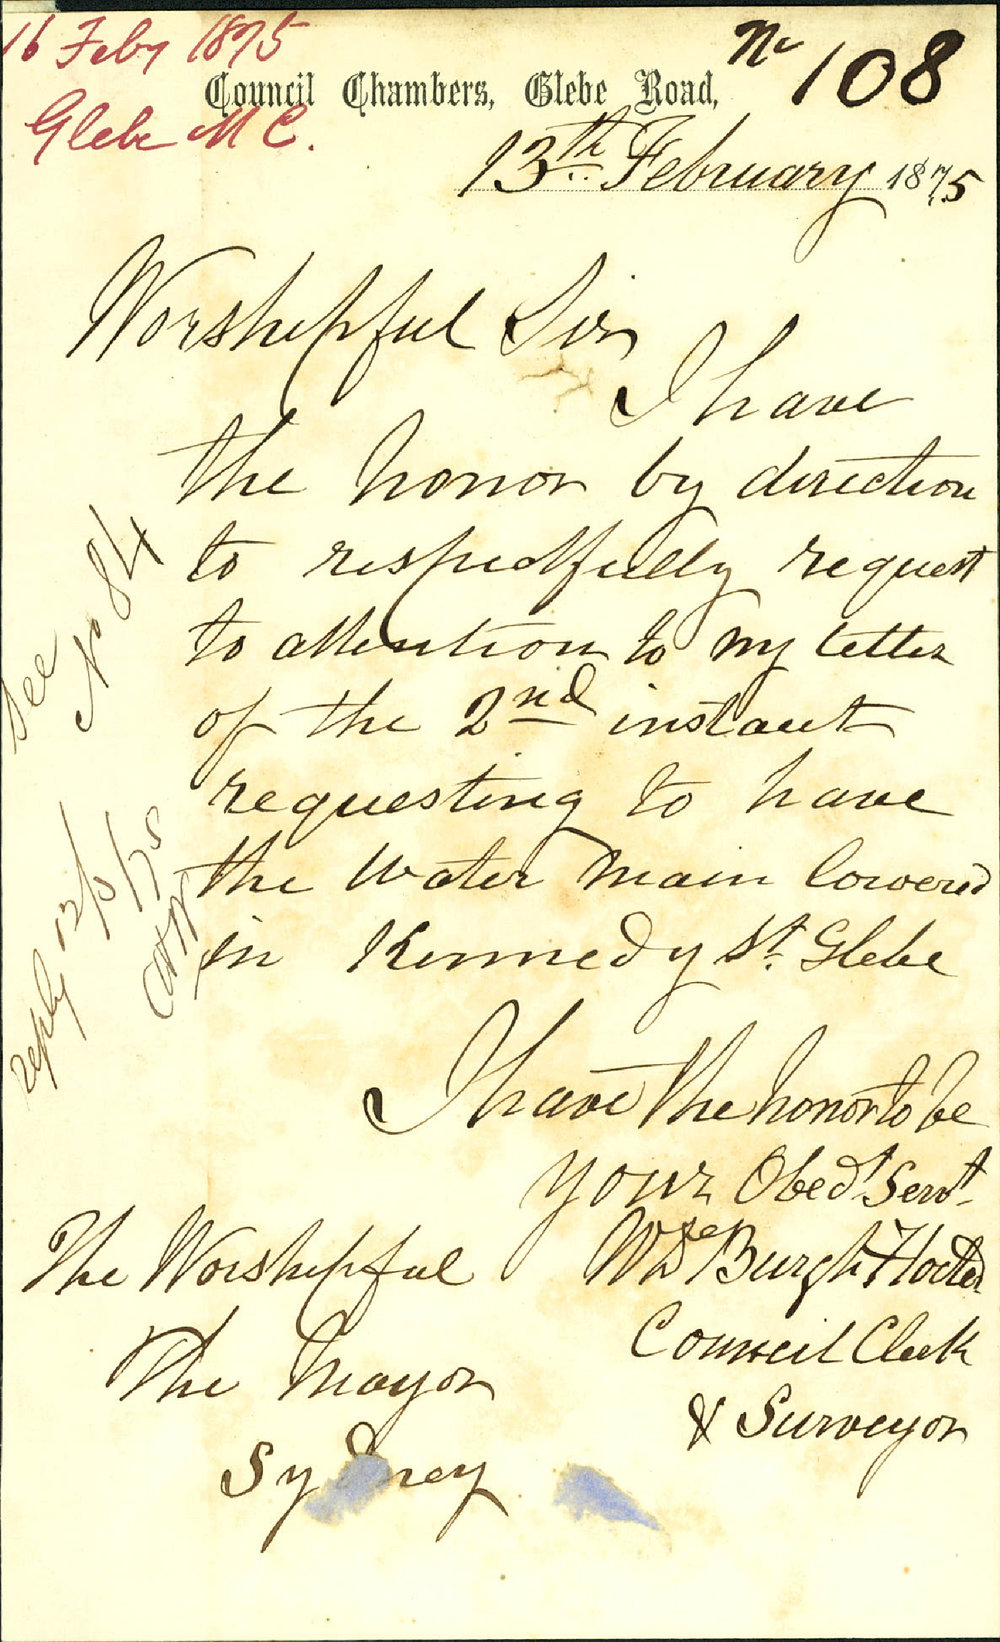 16 Feby 1875
Glebe M C.
No 108
Council Chambers, Glebe Road,
13th February 1875
Worshipful Sir
I have
the honor by direction
to respectfully request
to attention to my letter
of the 2nd instant
requesting to have
the Water Main lowered
in Kennedy St. Glebe
I have the honor to be
your Obedt. Servt.
W De Burgh Hocter
Council Clerk
& Surveyor
The Worshipful
The Mayor
Sydney
See
No 84
reply